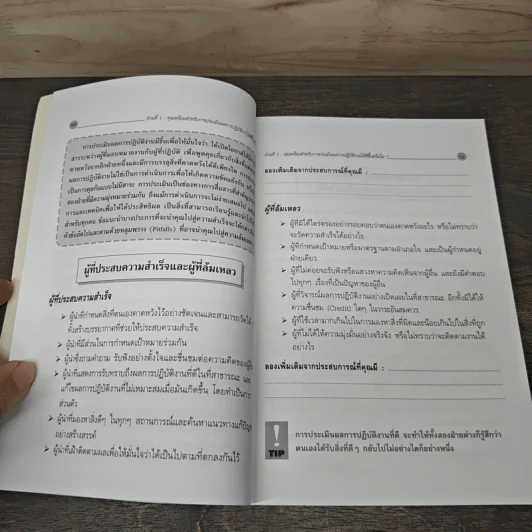 ส่วนที่ 1 : คุณพร้อมสำหรับการประเมินผลการปฏิบัติงาน
การประเมินผลการปฏิบัติงานมีขึ้นเพื่อให้มั่นใจว่า ได้เปิดโอกาสให้
สาระระหว่างผู้ที่มอบหมายงานกับผู้ที่ปฏิบัติ เพื่อพูดคุยเกี่ยวกับสิ่งที่
คาดหวังจากอีกฝ่ายหนึ่งและมีการบรรลุสิ่งที่คาดหวังได้ดีเพียงใด การ
ผลการปฏิบัติงานไม่ใช่เป็นการดำเนินการเพื่อให้เกิดความขัดแย้งกัน
เป็นการคุยกันแบบไม่มีสาระ การประเมินเป็นช่องทางการสื่อสารที่สำคัญ
สองฝ่ายที่มีความมุ่งหมายร่วมกัน ถึงแม้การดำเนินการจะไม่ง่ายเสมอไป
การและเทคนิคเพื่อให้ได้ประสิทธิผล เป็นสิ่งที่สามารถเรียนรู้และนำไป
สำหรับทุกคน ข้อแนะนำบางประการที่จะนำคุณไปสู่ความสำเร็จจะได้
หัวข้อถัดไปและตามด้วยหลุมพราง (Pitfalls) ที่อาจนำคุณไปสู่ความ
ผู้ที่ประสบความสำเร็จและผู้ที่ล้มเหลว
ผู้ที่ประสบความสำเร็จ
➤ ผู้นำที่กำหนดสิ่งที่ตนเองคาดหวังไว้อย่างชัดเจนและสามารถวัดได้
ทั้งสร้างบรรยากาศที่ช่วยให้ประสบความสำเร็จ
➤ ผู้นำที่มีส่วนในการกำหนดเป้าหมายร่วมกัน
➤ ผู้นำซึ่งถามคำถาม รับฟังอย่างตั้งใจและชื่นชมต่อความคิดของผู้อื่น
➤ ผู้นำที่แสดงการรับทราบถึงผลการปฏิบัติงานที่ดีในที่สาธารณะ และ
แก้ไขผลการปฏิบัติงานที่ไม่เหมาะสมเมื่อมันเกิดขึ้น โดยทำเป็นการ
ส่วนตัว
➤ ผู้นำที่มองหาสิ่งดีๆ ในทุกๆ สถานการณ์และค้นหาแนวทางแก้ปัญหา
อย่างสร้างสรรค์
➤ ผู้นำที่เฝ้าติดตามผลเพื่อให้มั่นใจว่าได้เป็นไปตามที่ตกลงกันไว้
ส่วนที่ 1 : คุณพร้อมสำหรับการประเมินผลการปฏิบัติงาน
ลองเพิ่มเติมจากประสบการณ์ที่คุณมี :
ผู้ที่ล้มเหลว
➤ ผู้ที่มิได้ไตร่ตรองอย่างรอบคอบว่าตนเองคาดหวังอะไร หรือไม่ทราบว่า
จะวัดความสำเร็จได้อย่างไร
➤ ผู้ที่กำหนดเป้าหมายหรือมาตรฐานตามอำเภอใจ และเป็นผู้กำหนดอยู่
ฝ่ายเดียว
➤ ผู้ที่ไม่ค่อยจะรับฟังหรือแสวงหาความคิดเห็นจากผู้อื่น และยังมีคำตอบ
ไปทุกๆ เรื่องที่เป็นปัญหาของผู้อื่น
➤ ผู้ที่วิจารณ์ผลการปฏิบัติงานอย่างเปิดเผยในที่สาธารณะ อีกทั้งมิได้ให้
ความชื่นชม (Credit) ใดๆ ในวาระอันสมควร
➤ ผู้ที่ใช้เวลามากเกินไปในการมองหาสิ่งที่ผิดและน้อยเกินไปในสิ่งที่ถูก
➤ ผู้ที่ไม่ได้ให้ความมุ่งมั่นอย่างจริงจัง หรือไม่ทราบว่าจะติดตามงานได้
อย่างไร
ลองเพิ่มเติมจากประสบการณ์ที่คุณมี :
!
TIP
การประเมินผลการปฏิบัติงานที่ดี จะทำให้ทั้งสองฝ่ายต่างก็รู้สึกว่า
ตนเองได้รับสิ่งที่ดีๆ กลับไปไม่อย่างใดก็อย่างหนึ่ง